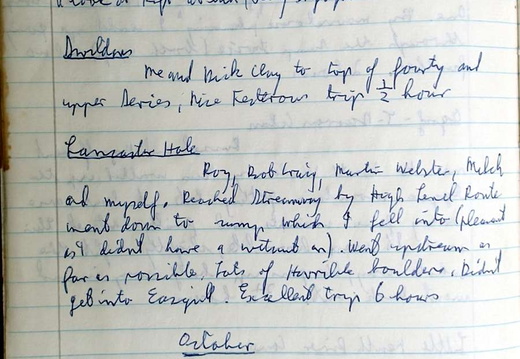 Swildons
Me and Dick Clay to top of fourty and
upper Series, Nice trip ½ hour
Lancaster Hole
Roy, Bob Craig, Martin Webster, Milch
and myself. Reached Streamway by High Level Route
went down to sump which I fell into (pleasent
as I didn't have a wetsuit on). Went upstream as
far as possible. Lots of Horrible boulders. Didn't
get into Easgill. Excellent trip 6 hours
October